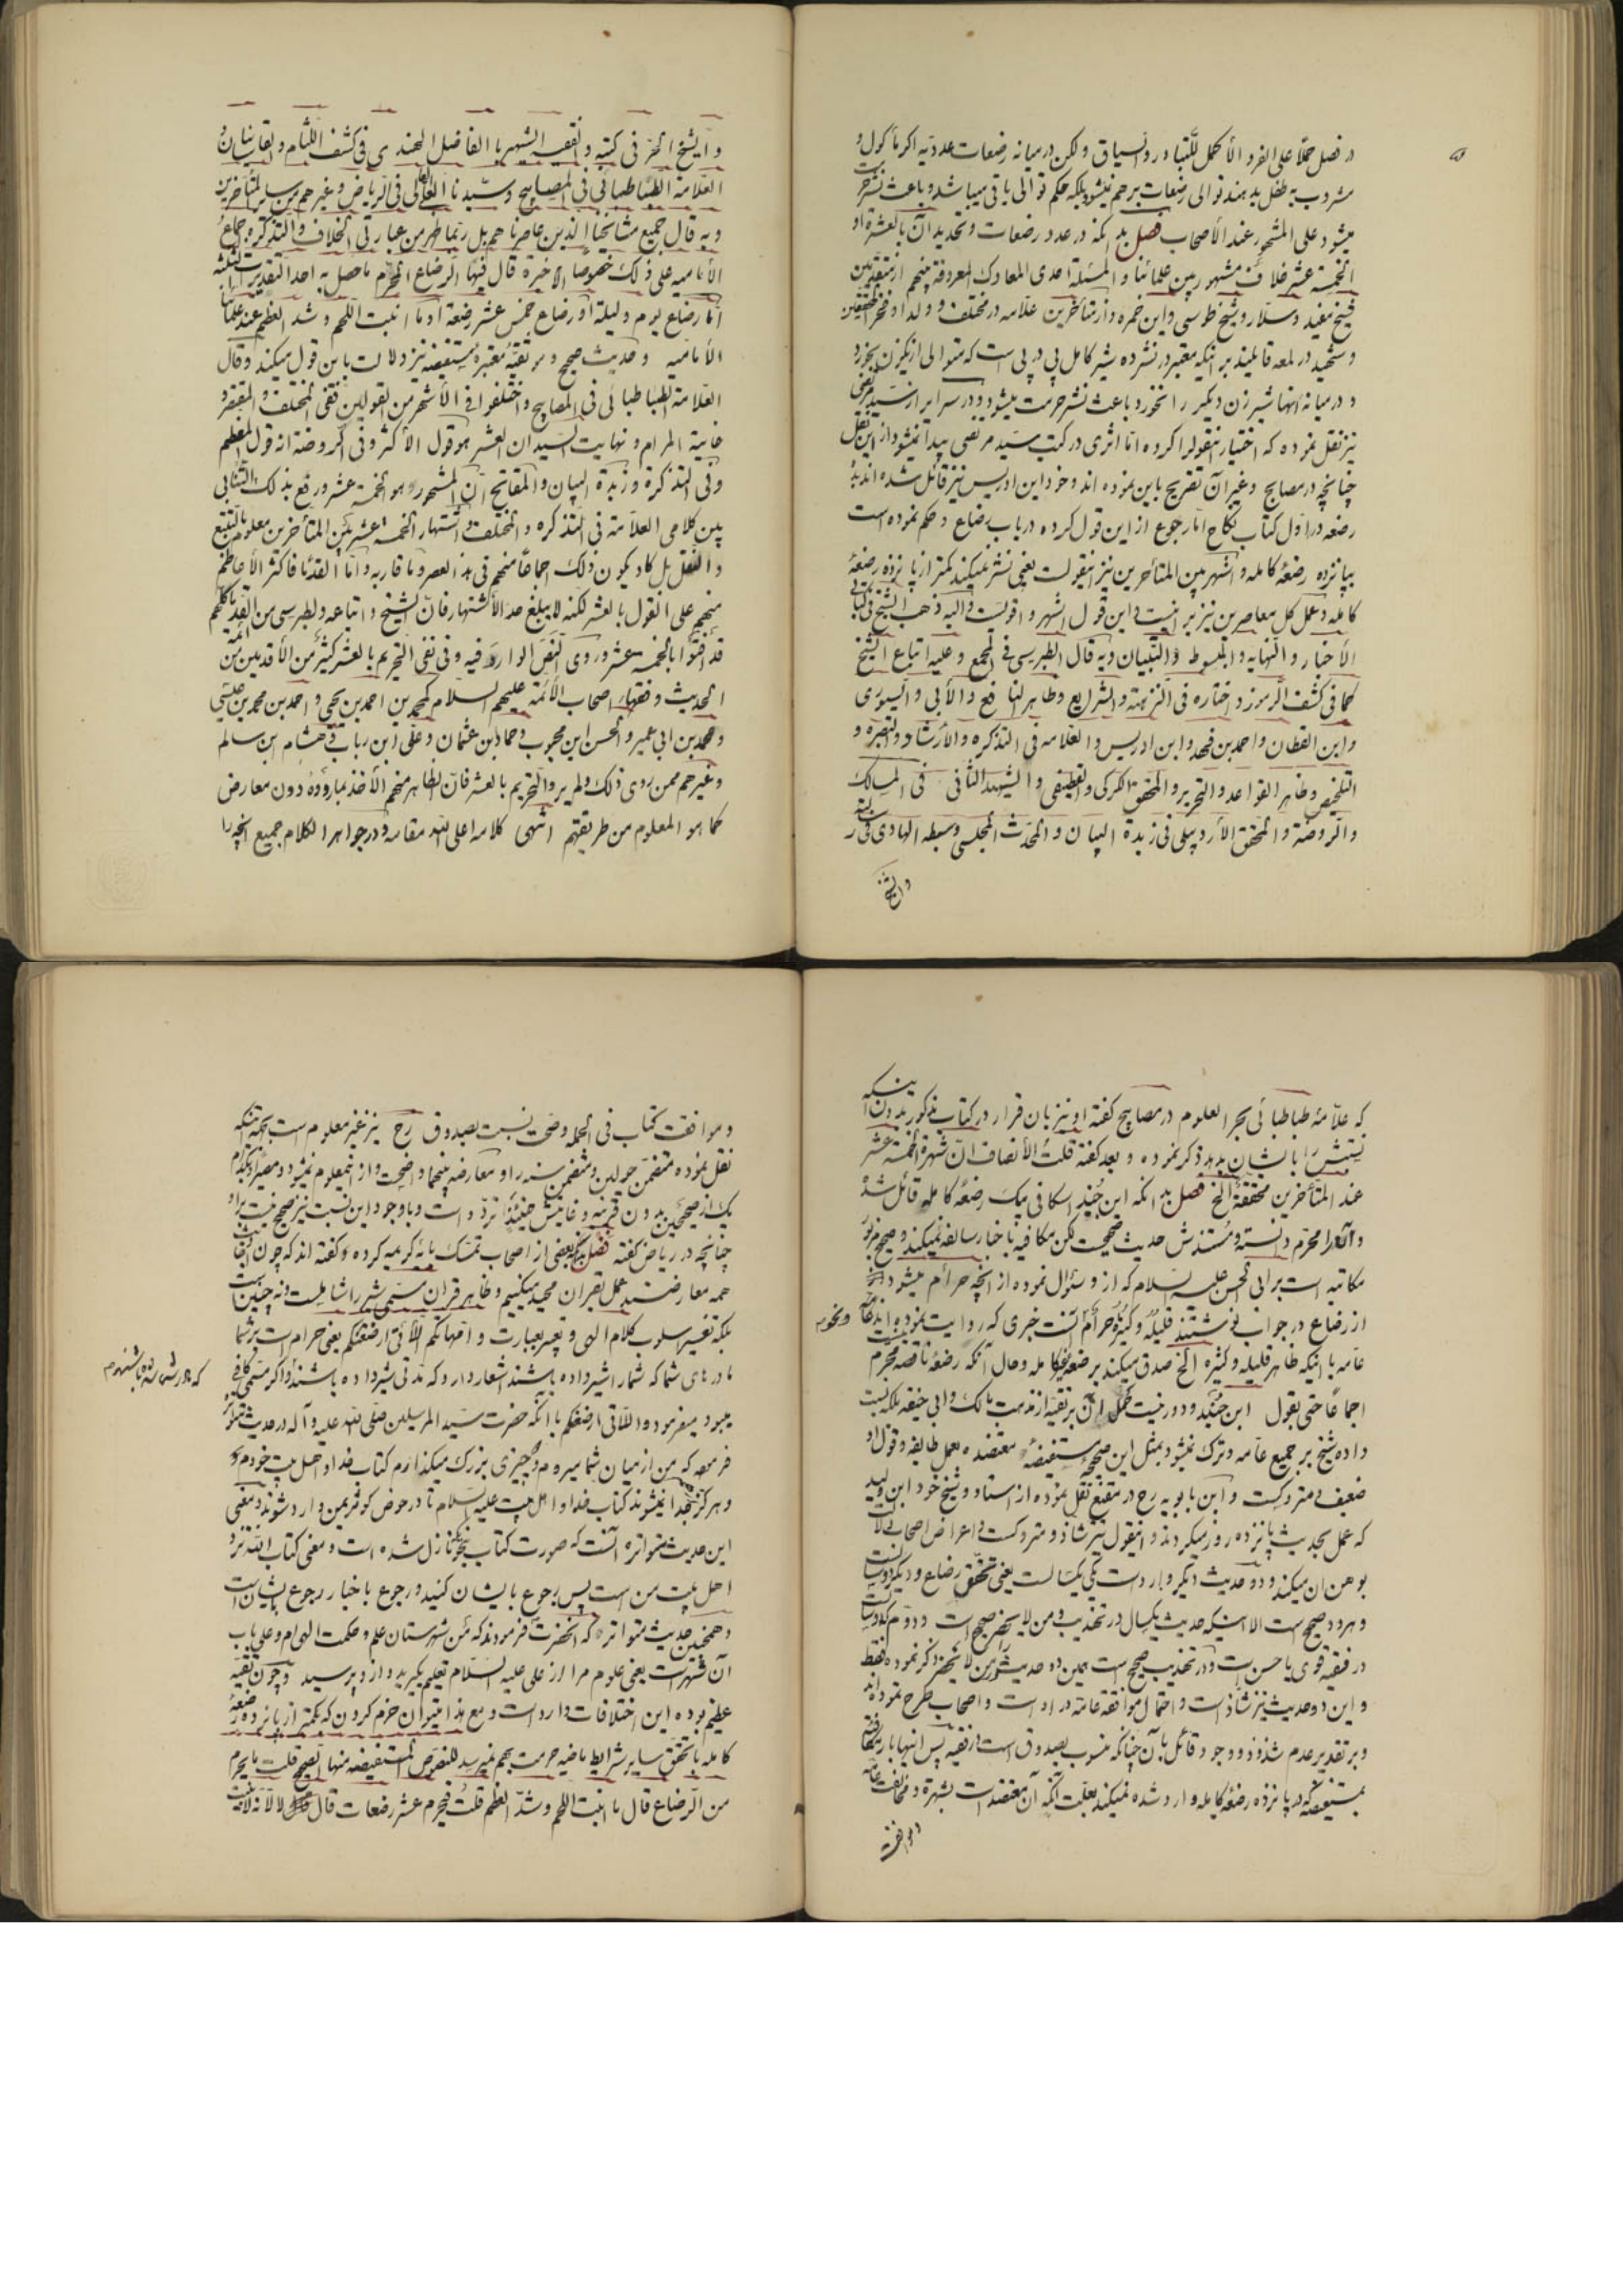 در فصل حملًا علی الفرد الأکمل للتبادر و السیاق و لکن در میانه رضعات عددیه اکر مأکول و
مشروب به طفل بدهند توالی رضعات بر هم نمیشود بلکه حکم توالی باقی میباشد و باعث نشر حرمت
میشود علی المشهور عند الأصحاب فصل بدانکه در عدد رضعات و تحدید آن بالعشرة او
الخمسة عشر خلاف مشهور بین علمائنا و المسئلة احدی المعارک المعروفة بینهم از متقدمین
شیخ مفید و سلار و شیخ طوسی و ابن حمزه و از متأخرین علامه در مختلف و ولد او فخر المحققین
و شهید در لمعه قایلند بر اینکه معتبر در نشر ده شیر کامل پی در پی است که متوالی از یکزن بخورد
و در میانه آنها شیر زن دیکر را نخورد باعث نشر حرمت میشود و در سرایر از سید مرتضی
نیز نقل نموده که اختیار اینقول را کرده اما اثری در کتب سید مرتضی پیدا نمیشود از این نقل
چنانچه در مصابیح و غیر آن تصریح باین نموده اند و خود ابن ادریس نیز قائل شده اند بده
رضعه در اول کتاب نکاح اما رجوع از این قول کرده در باب رضاع و حکم نموده است
بپانزده رضعهٔ کامله و اشهر بین المتأخرین نیز اینقولست یعنی نشر نمیکند کمتر از پانزده رضعهٔ
کامله و عمل کل معاصرین نیز بر اینست و این قول اشهر و اقویست و الیه ذهب الشیخ فی کتابی
الأخبار و النهایه و المبسوط و التبیان و به قال الطبرسی فی المجمع و علیه اتباع الشیخ
کما فی کشف الرموز و اختاره فی النزهة و الشرایع و ظاهر النافع و الآبی و السیوری
و ابن القطان و احمد بن فهد و ابن ادریس و العلامه فی التذکره و الأرشاد و التبصره و
التلخیص و ظاهر القواعد و التحریر و المحقق الکرکی و القطیفی و الشهید الثانی فی المسالک
و الروضة و المحقق الأردبیلی فی زبدة البیان و المحدث المجلسی و سبطه الهادی فی رسالته
و الشیخ
و الشیخ الحر فی کتبه و الفقیه الشهیر بالفاضل الهندی فی کشف اللثام و القاسانیان و
العلامة الطباطبائی فی المصابیح و سیدنا العالی فی الریاض و غیرهم من سایر المتأخرین
و به قال جمیع مشایخنا الذین عاصرناهم بل ربما ظهر من عبارتی الخلاف و التذکره اجماع
الأمامیه علی ذلک خصوصًا الأخیرة قال فیها الرضاع المحرم ما حصل به احد التقدیرات الثلثة
اما رضاع یوم و لیلة او رضاع خمس عشر رضعة او ما انبت اللحم و شد العظم عند علمائنا
الأمامیه و حدیث صحیح و موثقة معتبرهٔ مستفیضه نیز دلالت باین قول میکند و قال
العلامة الطباطبائی فی المصابیح و اختلفوا فی الأشهر من القولین ففی المختلف و المقتصر و
غایة المرام و نهایت السید ان العشر هو قول الأکثر و فی الروضة انه قول المعظم
و فی التذکرة و زبدة البیان و المفاتیح ان المشهور هو الخمسة عشر و رفع بذلک التنافی
بین کلامی العلامة فی التذکره و المختلف و اشتهار الخمسة عشر بین المتأخرین معلوم بالتتبع
و النقل بل کاد یکون ذلک اجماعًا منهم فی هذا العصر و ما قاربه و اما القدماء فاکثر الأعاظم
منهم علی القول بالعشر لکنه لا یبلغ حد الأشتهار فان الشیخ و اتباعه و الطبرسی من القدماء کلهم
قد افتوا بالخمسة عشر و روی النص الوارد فیه و فی نفی التحریم بالعشر کثیر من الأقدمین من ائمة
الحدیث و فقهاء اصحاب الأئمة علیهم السلام کمحمد بن احمد بن یحیی و احمد بن محمد بن عیسی
و محمد بن ابی عمیر و الحسن ابن محبوب و حماد ابن عثمان و علی ابن رباب و هشام ابن سالم
و غیرهم ممن روی ذلک و لم یرو التحریم بالعشر فان الظاهر منهم الأخذ بما رووه دون معارض
کما هو المعلوم من طریقتهم انتهی کلامه اعلی الله مقامه و در جواهر الکلام جمیع آنچه را
که علامهٔ طباطبائی بحر العلوم در مصابیح کفته او نیز بان قرار در کتاب مذکور بدون اینکه
نسبتش را بایشان بدهد ذکر نموده و بعد کفته قلت الأنصاف ان شهرة الخمسة عشر
عند المتأخرین محققة الخ فصل بدانکه ابن جنید اسکافی بیک رضعهٔ کامله قائل شده
و آنرا محرم دانسته و مستندش حدیث صحیحست لکن مکافیه با خبار سالفه نمیکند و صحیح مزبور
مکاتبه است بر ابی الحسن علیه السلام که از او سئوال نموده از آنچه حرام میشود
از رضاع در جواب نوشتند قلیله و کثیره حرام آنست خبری که روایت نموده اند
عامه با اینکه ظاهر قلیله و کثیره الخ صدق میکند بر رضعهٔ غیر کامله و حال آنکه رضعهٔ ناقصه محرم نیست
اجماعًا حتی بقول ابن جنید و دور نیست حمل آن بر تقیه از مذهب مالک و ابی حنیفه بلکه نسبت
داده شیخ بر جمیع عامه و ترک نمیشود بمثل این صحیحه مستفیضهٔ معتضده بعمل طایفه و قول او
ضعیف و متروکست و ابن بابویه رح در مقنع نقل نموده از استاد و شیخ خود ابن ولید
که عمل بحدیث پانزده روز میکردند و اینقول نیز شاذ و متروکست و اعراض اصحاب دلالت
بوهن آن میکند و دو حدیث دیکر وارد است یکی یکسالست یعنی تحقق رضاع و دیکر دو سالست
و هر دو صحیح است الا اینکه حدیث یکسال در تهذیب و من لا یحضر صحیح است و دوم که دو سالست
در فقیه قوی یا حسن است و در تهذیب صحیح است همین دو حدیث را من لا یحضر ذکر نموده فقط
و این دو حدیث نیز شاذ است و احتمال موافقه عامه در او است و اصحاب طرح نموده اند
و بر تقدیر عدم شذوذ و وجود قائل بآن چنانکه منسوب بصدوق است از فقیه پس آنها با
مستفیضه که در پانزده رضعهٔ کامله وارد شده نمیکند بعلت آنکه آن معتضد است بشهرة و مخالفت عامه
و موافقت
و موافقت کتاب فی الجمله و صحت نسبت بصدوق رح نیز غیر معلوم است بجهة آنکه
نقل نموده متضمن حولین و متضمن سنه را و معارضه بینهما واضحست و از او معلوم نمیشود و مصیر او بکدام
یک از صحیحین بدون قرینه و غایتش حینئذ تردد است و با وجود این نسبت نیز صحیح نیست براو
چنانچه در ریاض کفته فصل بعضی از اصحاب تمسک بایه کریمه کرده و کفته اند که چون اخبار
همه معارضند عمل بقران مجید میکنیم و ظاهر قران مسمی شیر را شاملست و نه چنین است
بلکه تغییر اسلوب کلام الهی و تعبیر بعبارت و امهاتکم اللاتی ارضعنکم یعنی حرام است بر شما
مادرهای شما که شما را شیر داده باشند اشعار دارد که مدتی شیر داده باشند و اکر مسمی کافی
میبود میفرمود و اللاتی ارضعنکم با آنکه حضرت سید المرسلین صلی الله علیه و آله در حدیث متواتر
فرموده که من از میان شما میروم و دو چیزی بزرک میکذارم کتاب خدا و اهل بیت خودم
و هرکز جدا نمیشوند کتاب خدا و اهل بیت علیهم السلام تا در حوض کوثر بمن وارد شوند و معنی
این حدیث متواتره آنست که صورت کتاب بنحوی نازل شده است و معنی کتاب الله نزد
اهل بیت من است پس رجوع بایشان کنید و رجوع باخبار رجوع بایشان است
و همچنین حدیث متواتره که آنحضرت فرمودند که من شهرستان علم و حکمت الهی ام و علی باب
آن شهر است یعنی علوم مرا از علی علیه السلام تعلیم بکیرید و از او بپرسید و چون تقیه
عظیم بوده این اختلافات وارد است و مع هذا میتوان جزم کردن که کمتر از پانزده رضعهٔ
کامله با تحقق سایر شرایط ماضیه حرمت بهم نمیرسد للنصوص المستفیضه منها الصحیح قلت ما یحرم
من الرضاع قال ما انبت اللحم و شد العظم قلت فیحرم عشر رضعات قال لا لأنه لا تنبت